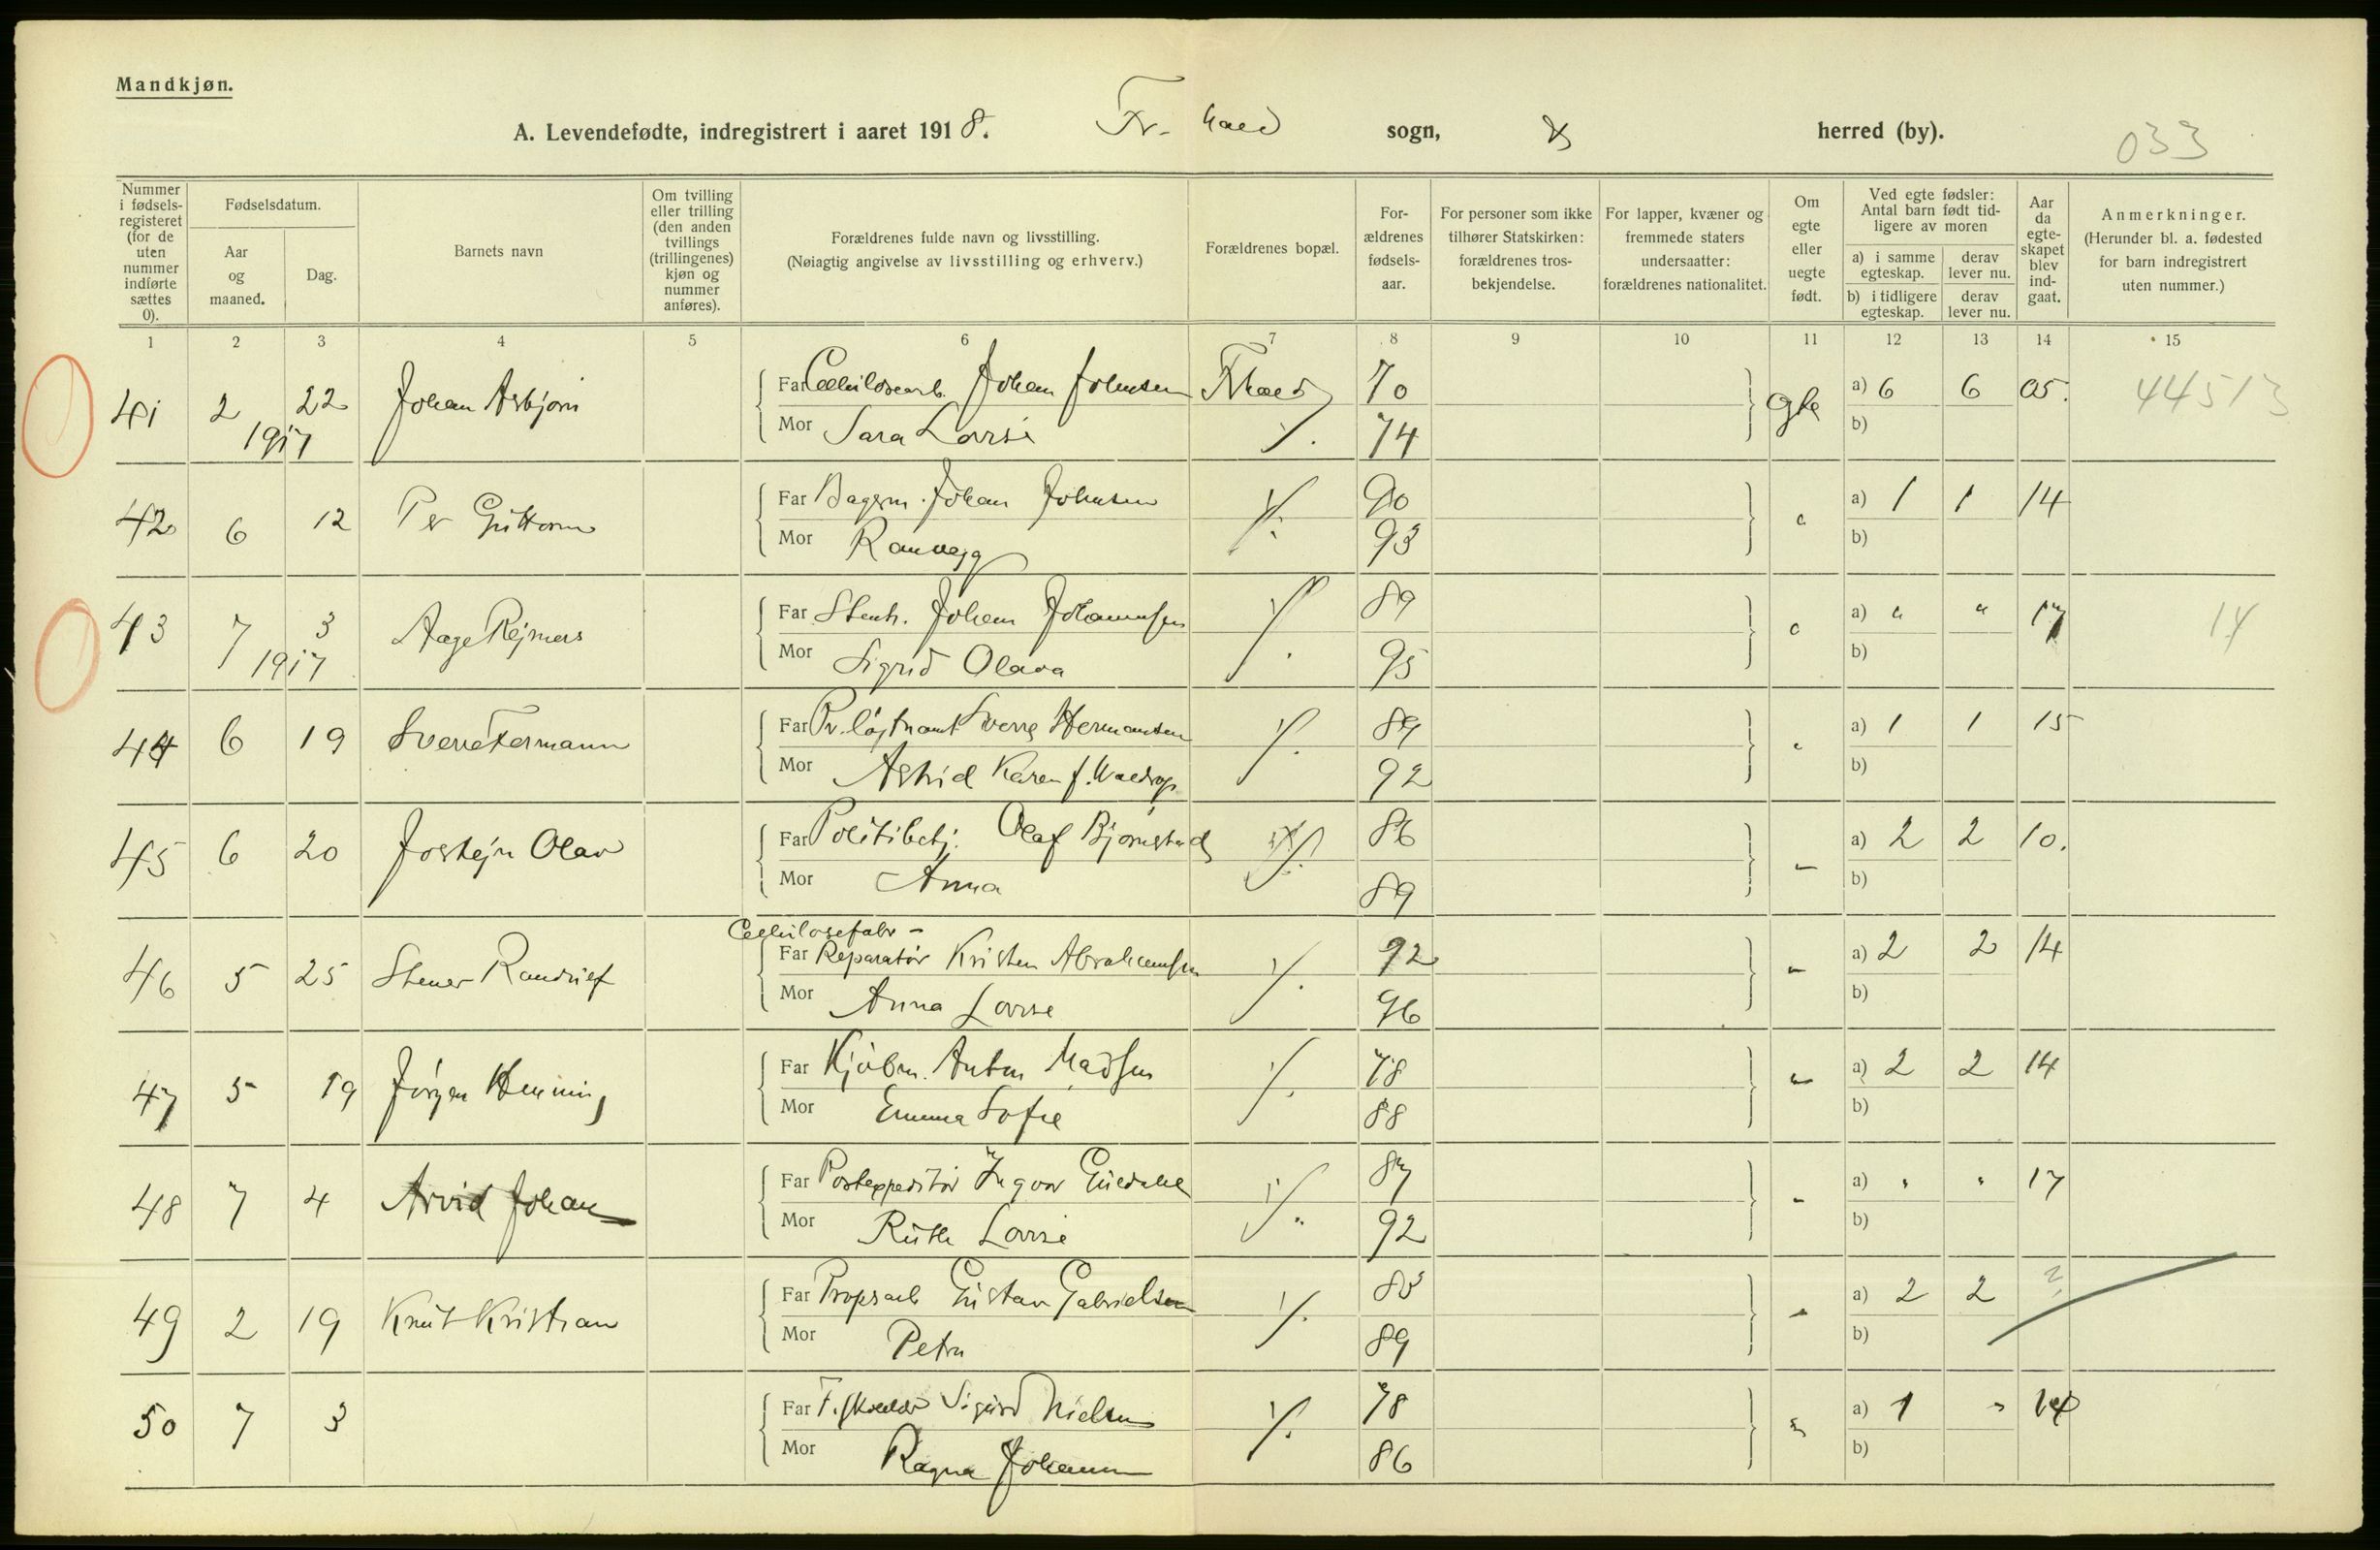 Mandkjøn.
A. Levendefødte, indregistrert i aaret 1918. Fr. sogn, herred (by). 033
Nummer i fødsels-registeret (for de uten nummer indførte sættes 0).
Fødselsdatum.
Aar og maaned.
Dag.
Barnets navn
Om tvilling eller trilling (den anden tvillings (trillingenes) kjøn og nummer anføres).
Forældrenes fulde navn og livsstilling.
(Nøiagtig angivelse av livsstilling og erhverv.)
Forældrenes bopæl.
For-ældrenes fødsels-aar.
For personer som ikke tilhører Statskirken: forældrenes tros-bekjendelse.
For lapper, kvæner og fremmede staters undersaatter: forældrenes nationalitet.
Om egte eller uegte født.
Ved egte fødsler: Antal barn født tid-ligere av moren
a) i samme egteskap. derav lever nu.
b) i tidligere egteskap. derav lever nu.
Aar da egte-skapet blev ind-gaat.
Anmerkninger.
(Herunder bl. a. fødested for barn indregistrert uten nummer.)
1 2 3 4 5 6 7 8 9 10 11 12 13 14 15
41 2 22 Johan Asbjørn Far Cellulosearb. Johan Johnsen 70 a) 6 6 05. 44513
1917 Mor Sara Lovise 74 b)
42 6 12 Per Guttorm Far Bagerm. Johan Johnsen 90 a) 1 1 14
Mor Ranveig 93 b)
43 7 3 Aage Rejmers Far Johan Johannsen 89 a) " " 17 14
1917 Mor Sigrid Olava 95 b)
44 6 19 Sverre Hermann Far Pr. løjtnant Sverre Hermansen 89 a) 1 1 15
Mor Astrid Karen f. 92 b)
45 6 20 Jostejn Olav Far Politibetj. Olaf Bjørnstad 86 a) 2 2 10.
Mor Anna 89 b)
Cellulosefabr-
46 5 25 Stener Far Reparatør Kristen Abrahamsen 92 a) 2 2 14
Mor Anna Lovise 96 b)
47 5 19 Jørgen Henning Far Kjøbm. Anton Madsen 78 a) 2 2 14
Mor Emma Sofie 88 b)
48 7 4 Arvid Johan Far Postexpeditør Ingvar 87 a) " " 17
Mor Ruth Lovise 92 b)
49 2 19 Knut Kristian Far Propsarb Gustav Gabrielsen a) 2 2 ?
Mor Petra 89 b)
50 7 3 Far Sigurd Nielsen 78 a) 1 " 14
Mor Ragna 86 b)